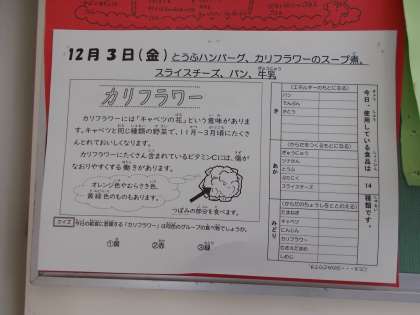 12月3日(金) とうふハンバーグ、カリフラワーのスープ煮、
スライスチーズ、パン、牛乳
カリフラワー
カリフラワーには「キャベツの花」という意味がありま
す。キャベツと同じ種類の野菜で、11月～3月頃にたくさ
んとれておいしくなります。
カリフラワーにたくさん含まれているビタミンCには、傷が
なおりやすくする働きがあります。
オレンジ色やむらさき色、
黄緑色のものもあります。
つぼみの部分を食べます。
クイズ
①黄
②赤
③緑
今日、使用している食品は、
14
種類です。
き
(エネルギーのもとになる)
パン
でんぷん
さとう
あか
(からだをつくるもとになる)
ぎゅうにゅう
とうふ
ぶたにく
スライスチーズ
みどり
(からだのちょうしをととのえる)
たまねぎ
キャベツ
にんじん
カリフラワー
しめじ